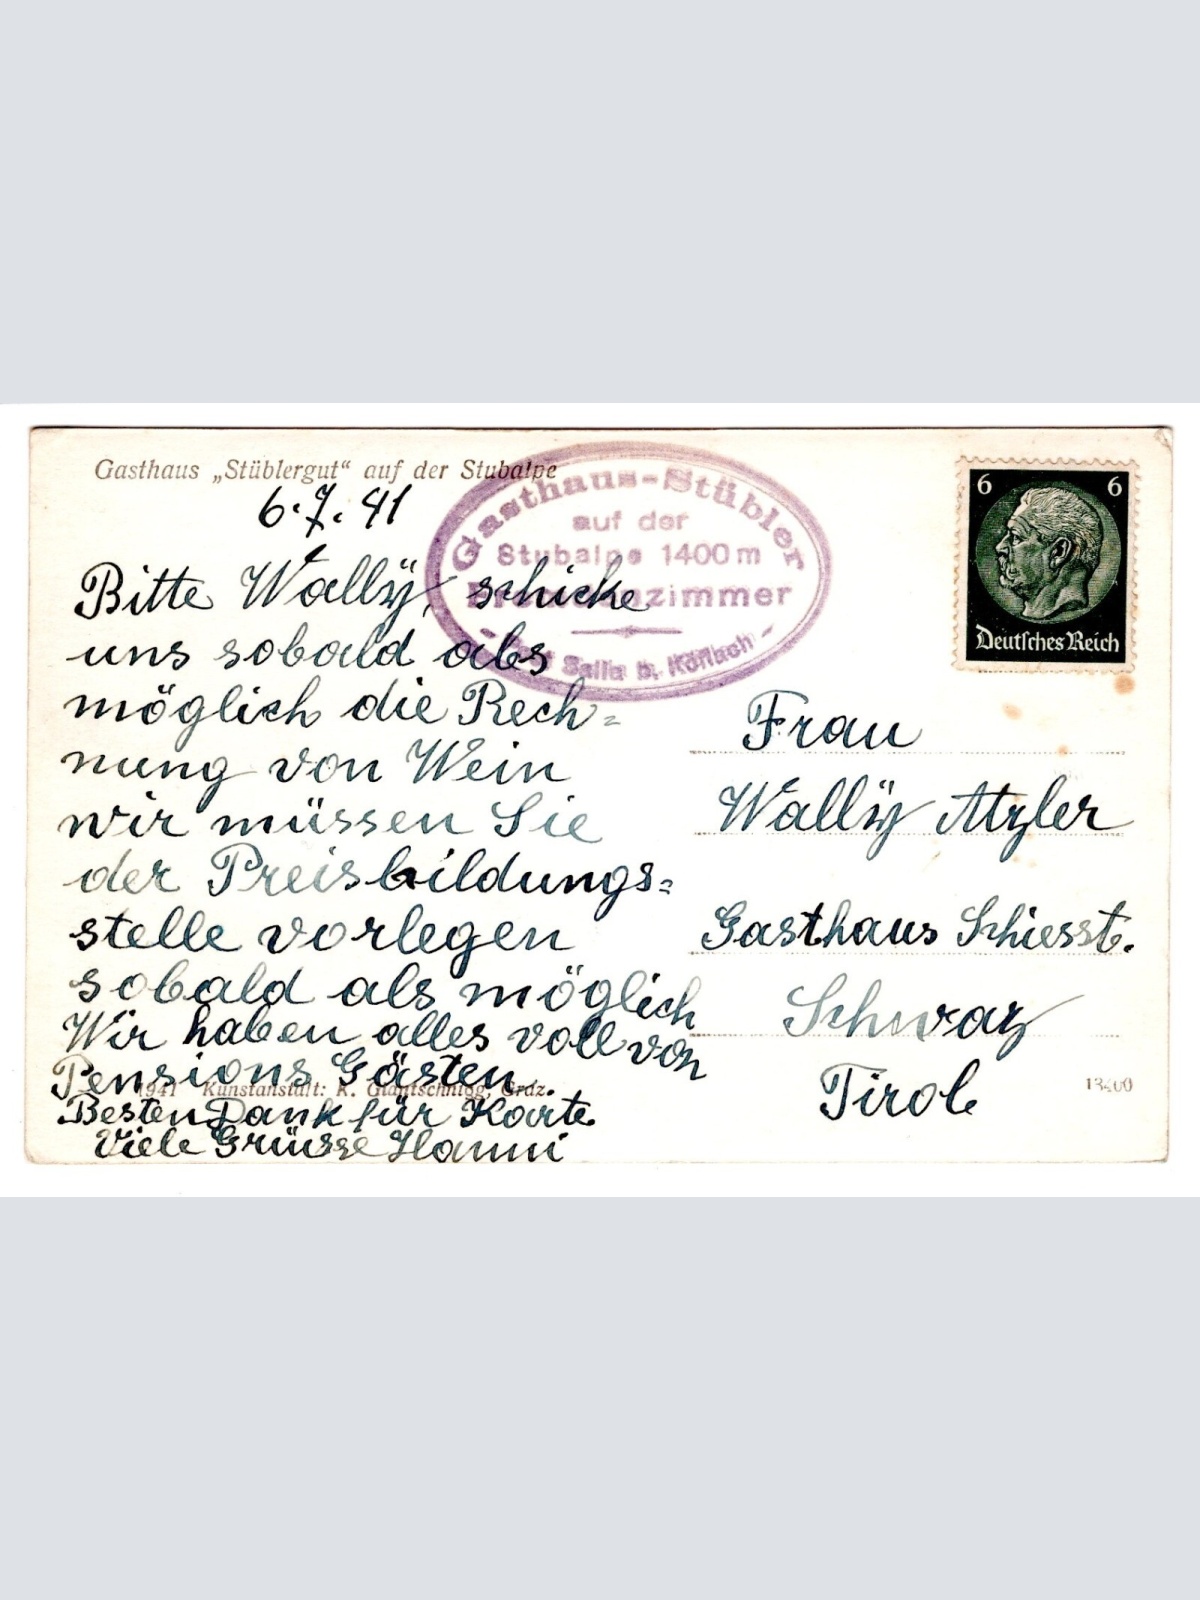 Gasthaus „Stüblergut“ auf der Stubalpe
6.7.41
Bitte Wallÿ, schicke
uns sobald als
möglich die Rech=
nung von Wein
wir müssen Sie
der Preisbildungs=
stelle vorlegen
sobald als möglich
Wir haben alles voll von
Pensions Gästen.
1941 Kunstanstalt: K. Glantschnigg, Graz.
Besten Dank für Karte.
Viele Grüsse Hanni
Gasthaus-Stübler
auf der
Stubalpe 1400 m
Fremdenzimmer
- Post Salla b. Köflach -
6 6
Deutsches Reich
Frau
Wallÿ Atzler
Gasthaus Schiesst.
Schwaz
Tirol
13400